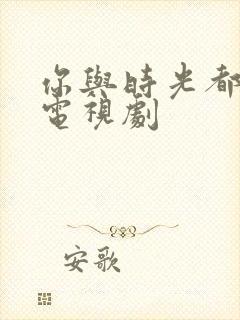 你與時光都
電視劇
安歌